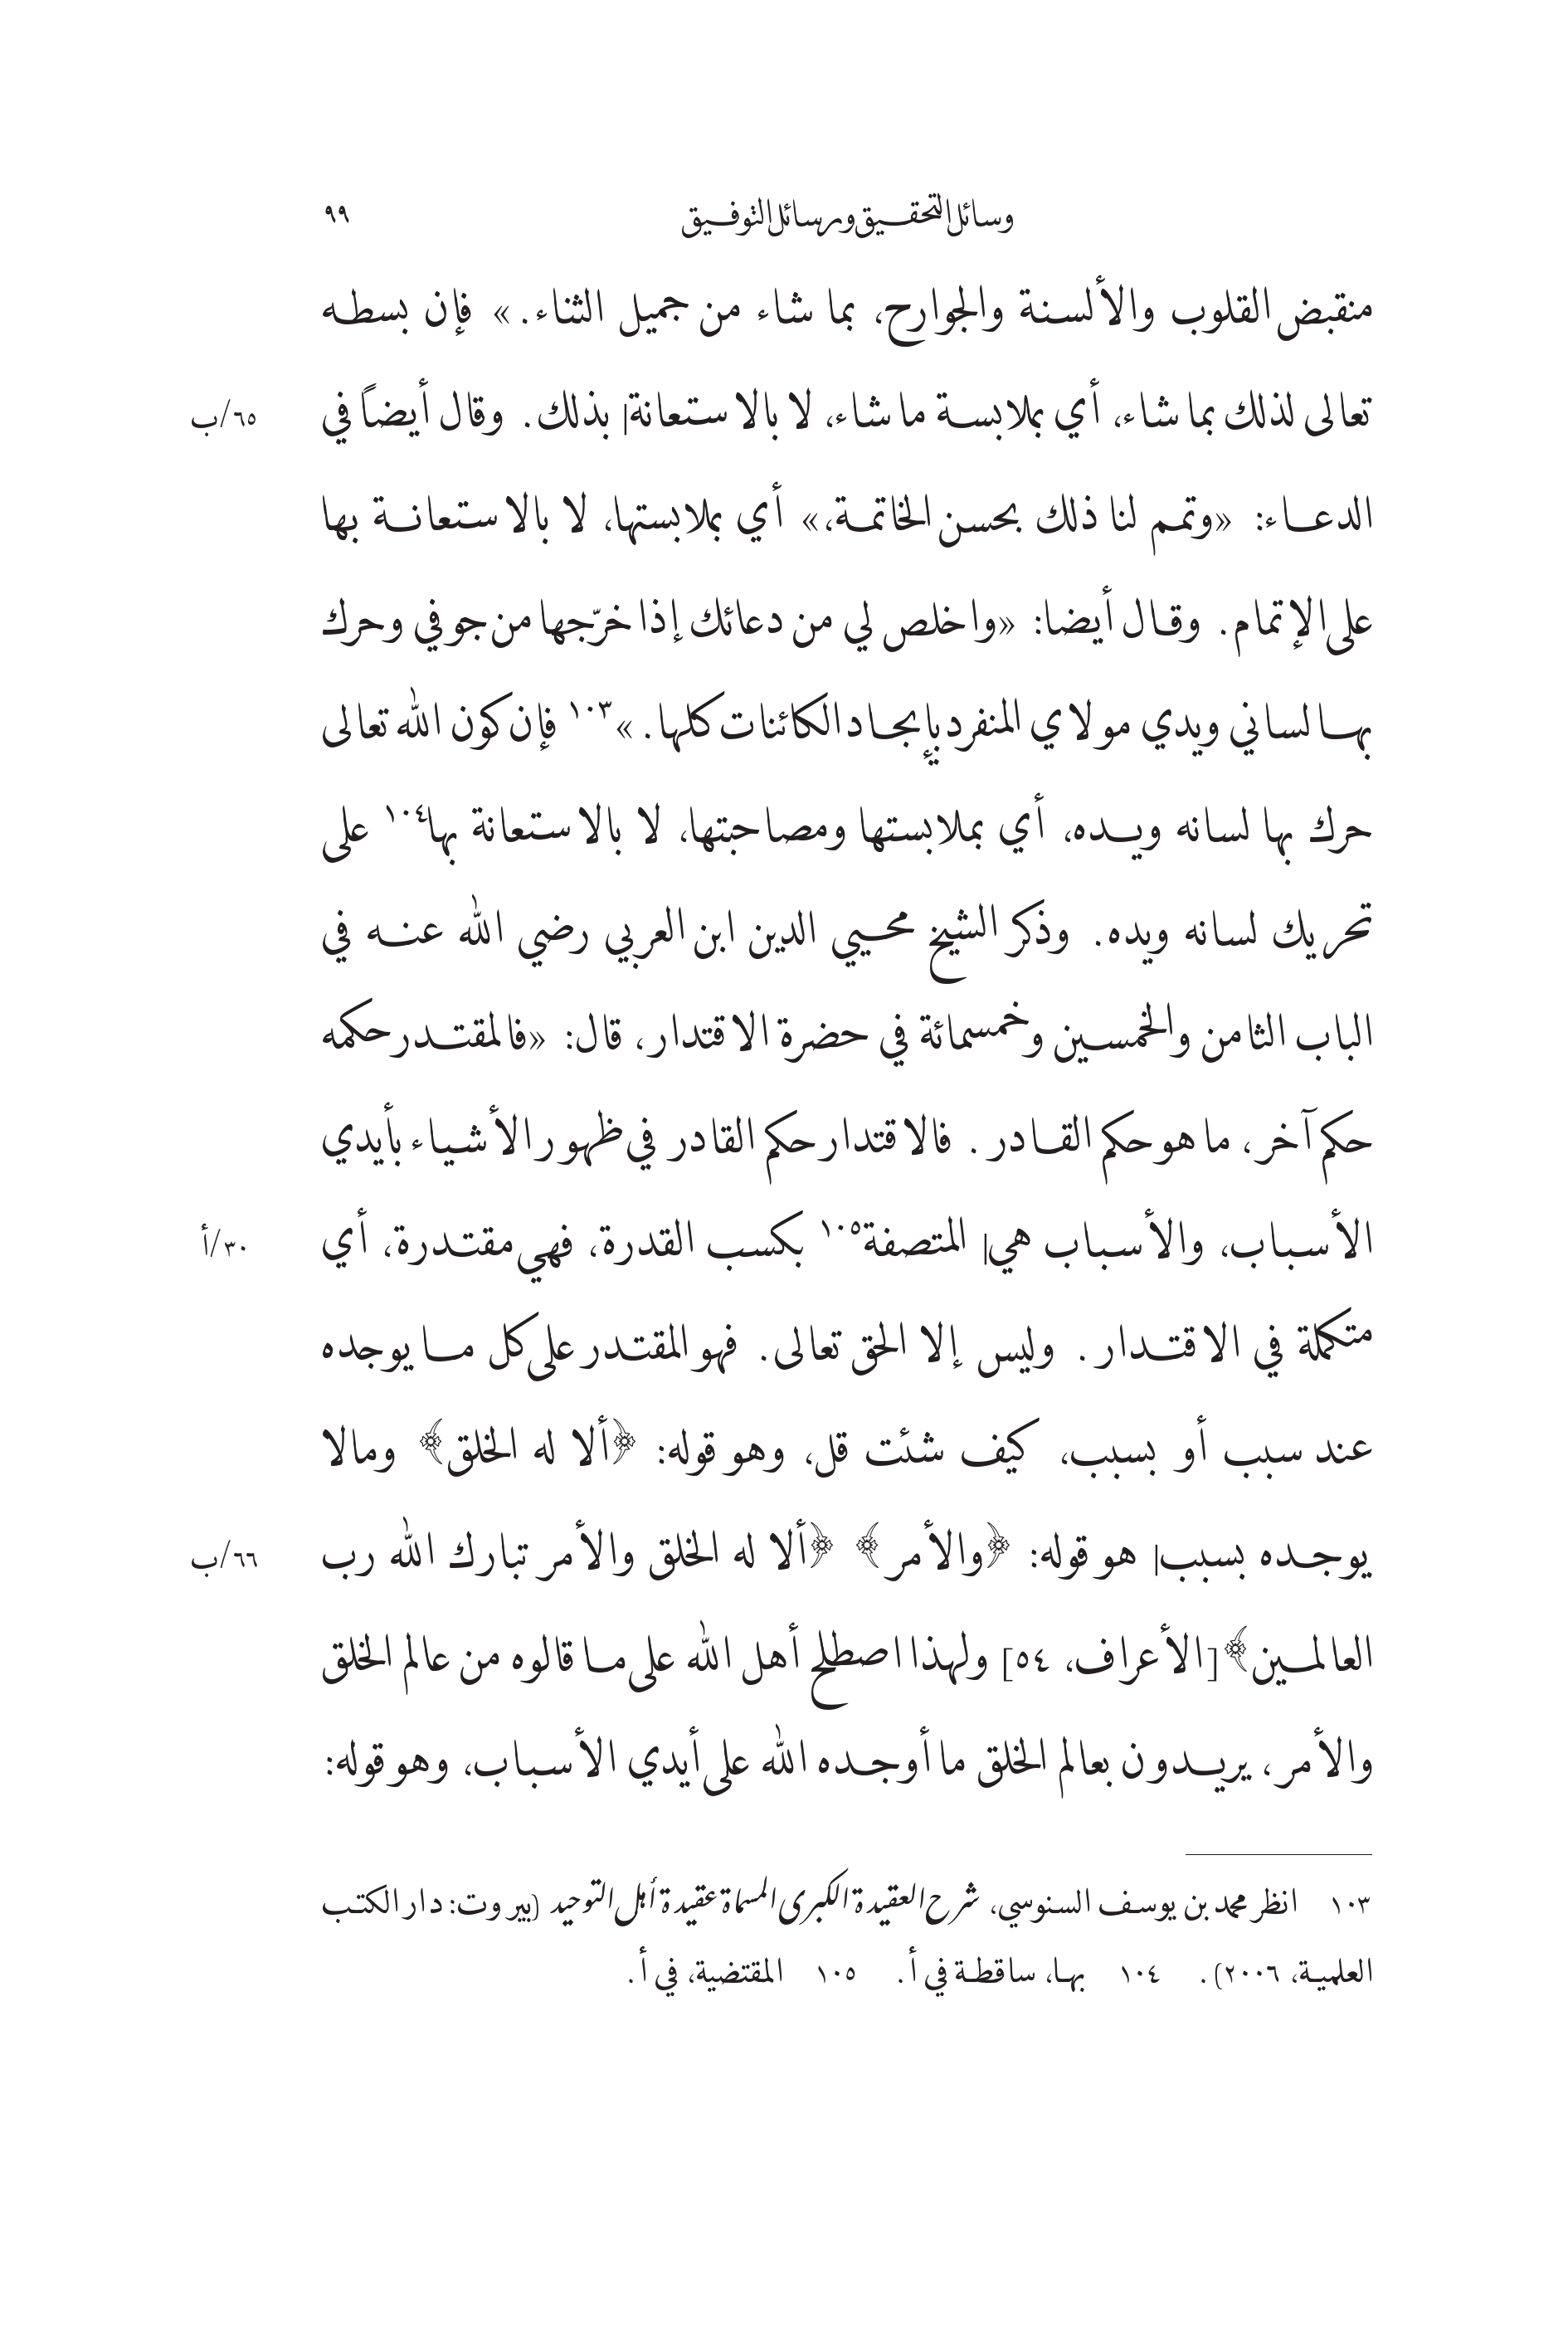 وسائل التحقيق ورسائل التوفيق ٩٩
منقبض القلوب والألسنة والجوارح، بما شاء من جميل الثناء.» فإن بسطه
تعالى لذلك بما شاء، أي بملابسة ما شاء، لا بالاستعانة| بذلك. وقال أيضاً في
٦٥/ب
الدعاء: «وتمم لنا ذلك بحسن الخاتمة،» أي بملابستها، لا بالاستعانة بها
على الإتمام. وقال أيضا: «واخلص لي من دعائك إذا خرّجها من جوفي وحرك
بها لساني ويدي مولاي المنفرد بإيجاد الكائنات كلها.»١٠٣ فإن كون الله تعالى
حرك بها لسانه ويده، أي بملابستها ومصاحبتها، لا بالاستعانة بها١٠٤ على
تحريك لسانه ويده. وذكر الشيخ محيي الدين ابن العربي رضي الله عنه في
الباب الثامن والخمسين وخمسمائة في حضرة الاقتدار، قال: «فالمقتدر حكمه
حكم آخر، ما هو حكم القادر. فالاقتدار حكم القادر في ظهور الأشياء بأيدي
الأسباب، والأسباب هي| المتصفة١٠٥ بكسب القدرة، فهي مقتدرة، أي
٣٠/أ
متكملة في الاقتدار. وليس إلا الحق تعالى. فهو المقتدر على كل ما يوجده
عند سبب أو بسبب، كيف شئت قل، وهو قوله: ﴿ألا له الخلق﴾ ومالا
يوجده بسبب| هو قوله: ﴿والأمر﴾ ﴿ألا له الخلق والأمر تبارك الله رب
٦٦/ب
العالمين﴾[الأعراف، ٥٤] ولهذا اصطلح أهل الله على ما قالوه من عالم الخلق
والأمر، يريدون بعالم الخلق ما أوجده الله على أيدي الأسباب، وهو قوله:
١٠٣ انظر محمد بن يوسف السنوسي، شرح العقيدة الكبرى المسماة عقيدة أهل التوحيد (بيروت: دار الكتب
العلمية، ٢٠٠٦). ١٠٤ بها، ساقطة في أ. ١٠٥ المقتضية، في أ.